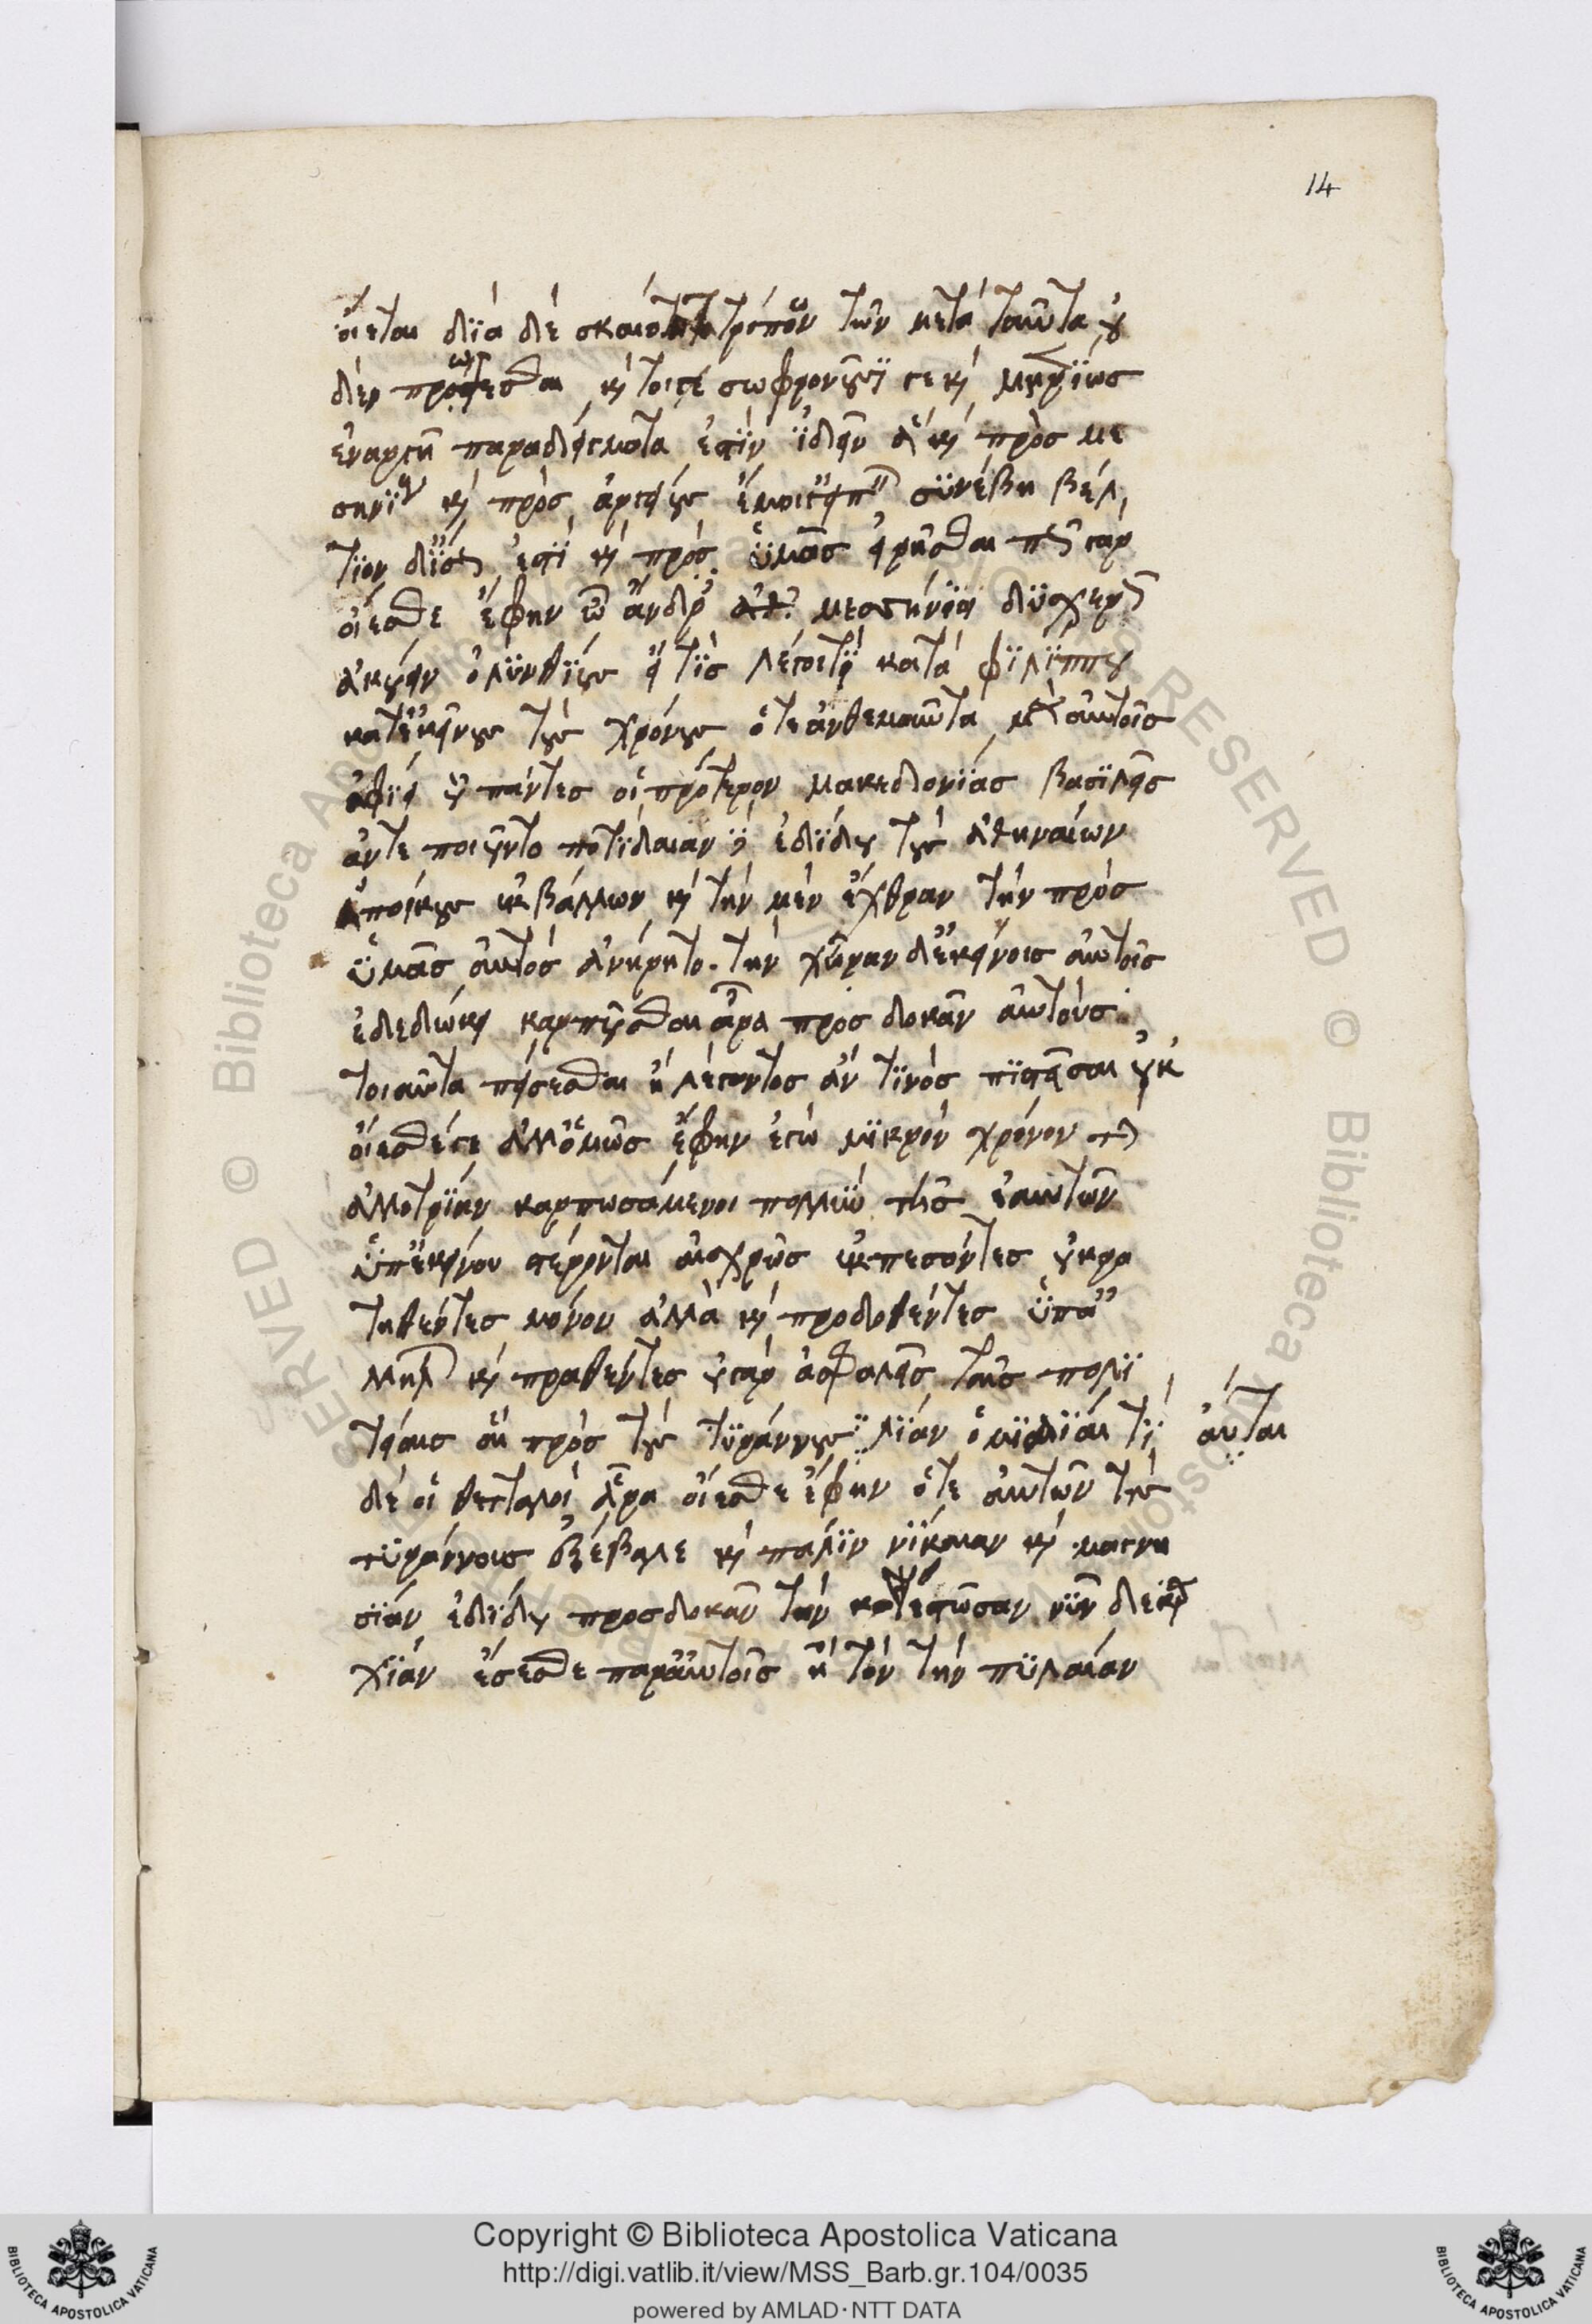 14
οἴεται διὰ δὲ σκαιότητα τρόπων τῶν μετὰ ταῦτα οὐ
δὲν προόψεσθαι καὶ τοί γε σωφρονοῦσί γε καὶ μετρίως
ἐναργῆ παραδείγματα ἐστὶν ἰδεῖν ἃ καὶ πρὸς με
σηνίους καὶ πρὸς ἀργείους ἔμοιγ' εἰπεῖν συνέβη βέλ
τιον δ' ἴσως ἐστὶ καὶ πρὸς ὑμᾶς εἰρῆσθαι πῶς γὰρ
οἴεσθε ἔφην ὦ ἄνδρες μεσσήνιοι δυσχερῶς
ἀκούειν ὀλυνθίους εἴ τις λέγοι τι κατὰ φιλίππου
κατ' ἐκείνους τοὺς χρόνους ὅτε ἀνθεμοῦντα μὲν αὐτοῖς
ἀφίει οὗ πάντες οἱ πρότερον μακεδονίας βασιλεῖς
ἀντεποιοῦντο ποτίδαιαν δ' ἐδίδου τοὺς ἀθηναίων
ἀποίκους ἐκβάλλων καὶ τὴν μὲν ἔχθραν τὴν πρὸς
ὑμᾶς αὐτὸς ἀνῄρητο. τὴν χώραν δ' ἐκείνοις αὐτοῖς
ἐδεδώκει καρποῦσθαι ἆρα προσδοκᾶν αὐτοὺς
τοιαῦτα πείσεσθαι ἢ λέγοντος ἄν τινὸς πιστεῦσαι οὐκ
οἴεσθέ γε ἀλλ' ὅμως ἔφην ἐγὼ μικρὸν χρόνον τὴν
ἀλλοτρίαν καρπωσάμενοι πολλοῦ τῆς ἑαυτῶν
ὑπ' ἐκείνου στέρονται αἰσχρῶς ἐκπεσόντες οὐ κρα
τηθέντες μόνον ἀλλὰ καὶ προδοθέντες ὑπ' ἀ
λλήλων καὶ πραθέντες οὐ γὰρ ἀσφαλεῖς ταῖς πολι
τείαις αἱ πρὸς τοὺς τυράννους λίαν ὁμιλίαι τί αὗται
δὲ οἱ θετταλοὶ ἆρα οἴεσθε ἔφην ὅτε αὐτῶν τοὺς
τυράννους ἐξέβαλε καὶ πάλιν νίκαιαν καὶ μαγνη
σίαν ἐδίδου προσδοκᾶν τὴν καθεστῶσαν νῦν δεκαδαρ
χίαν ἔσεσθε παρ' αὐτοῖς ἢ τὸν τὴν πυλαίαν
Copyright © Biblioteca Apostolica Vaticana
http://digi.vatlib.it/view/MSS_Barb.gr.104/0035
powered by AMLAD·NTT DATA